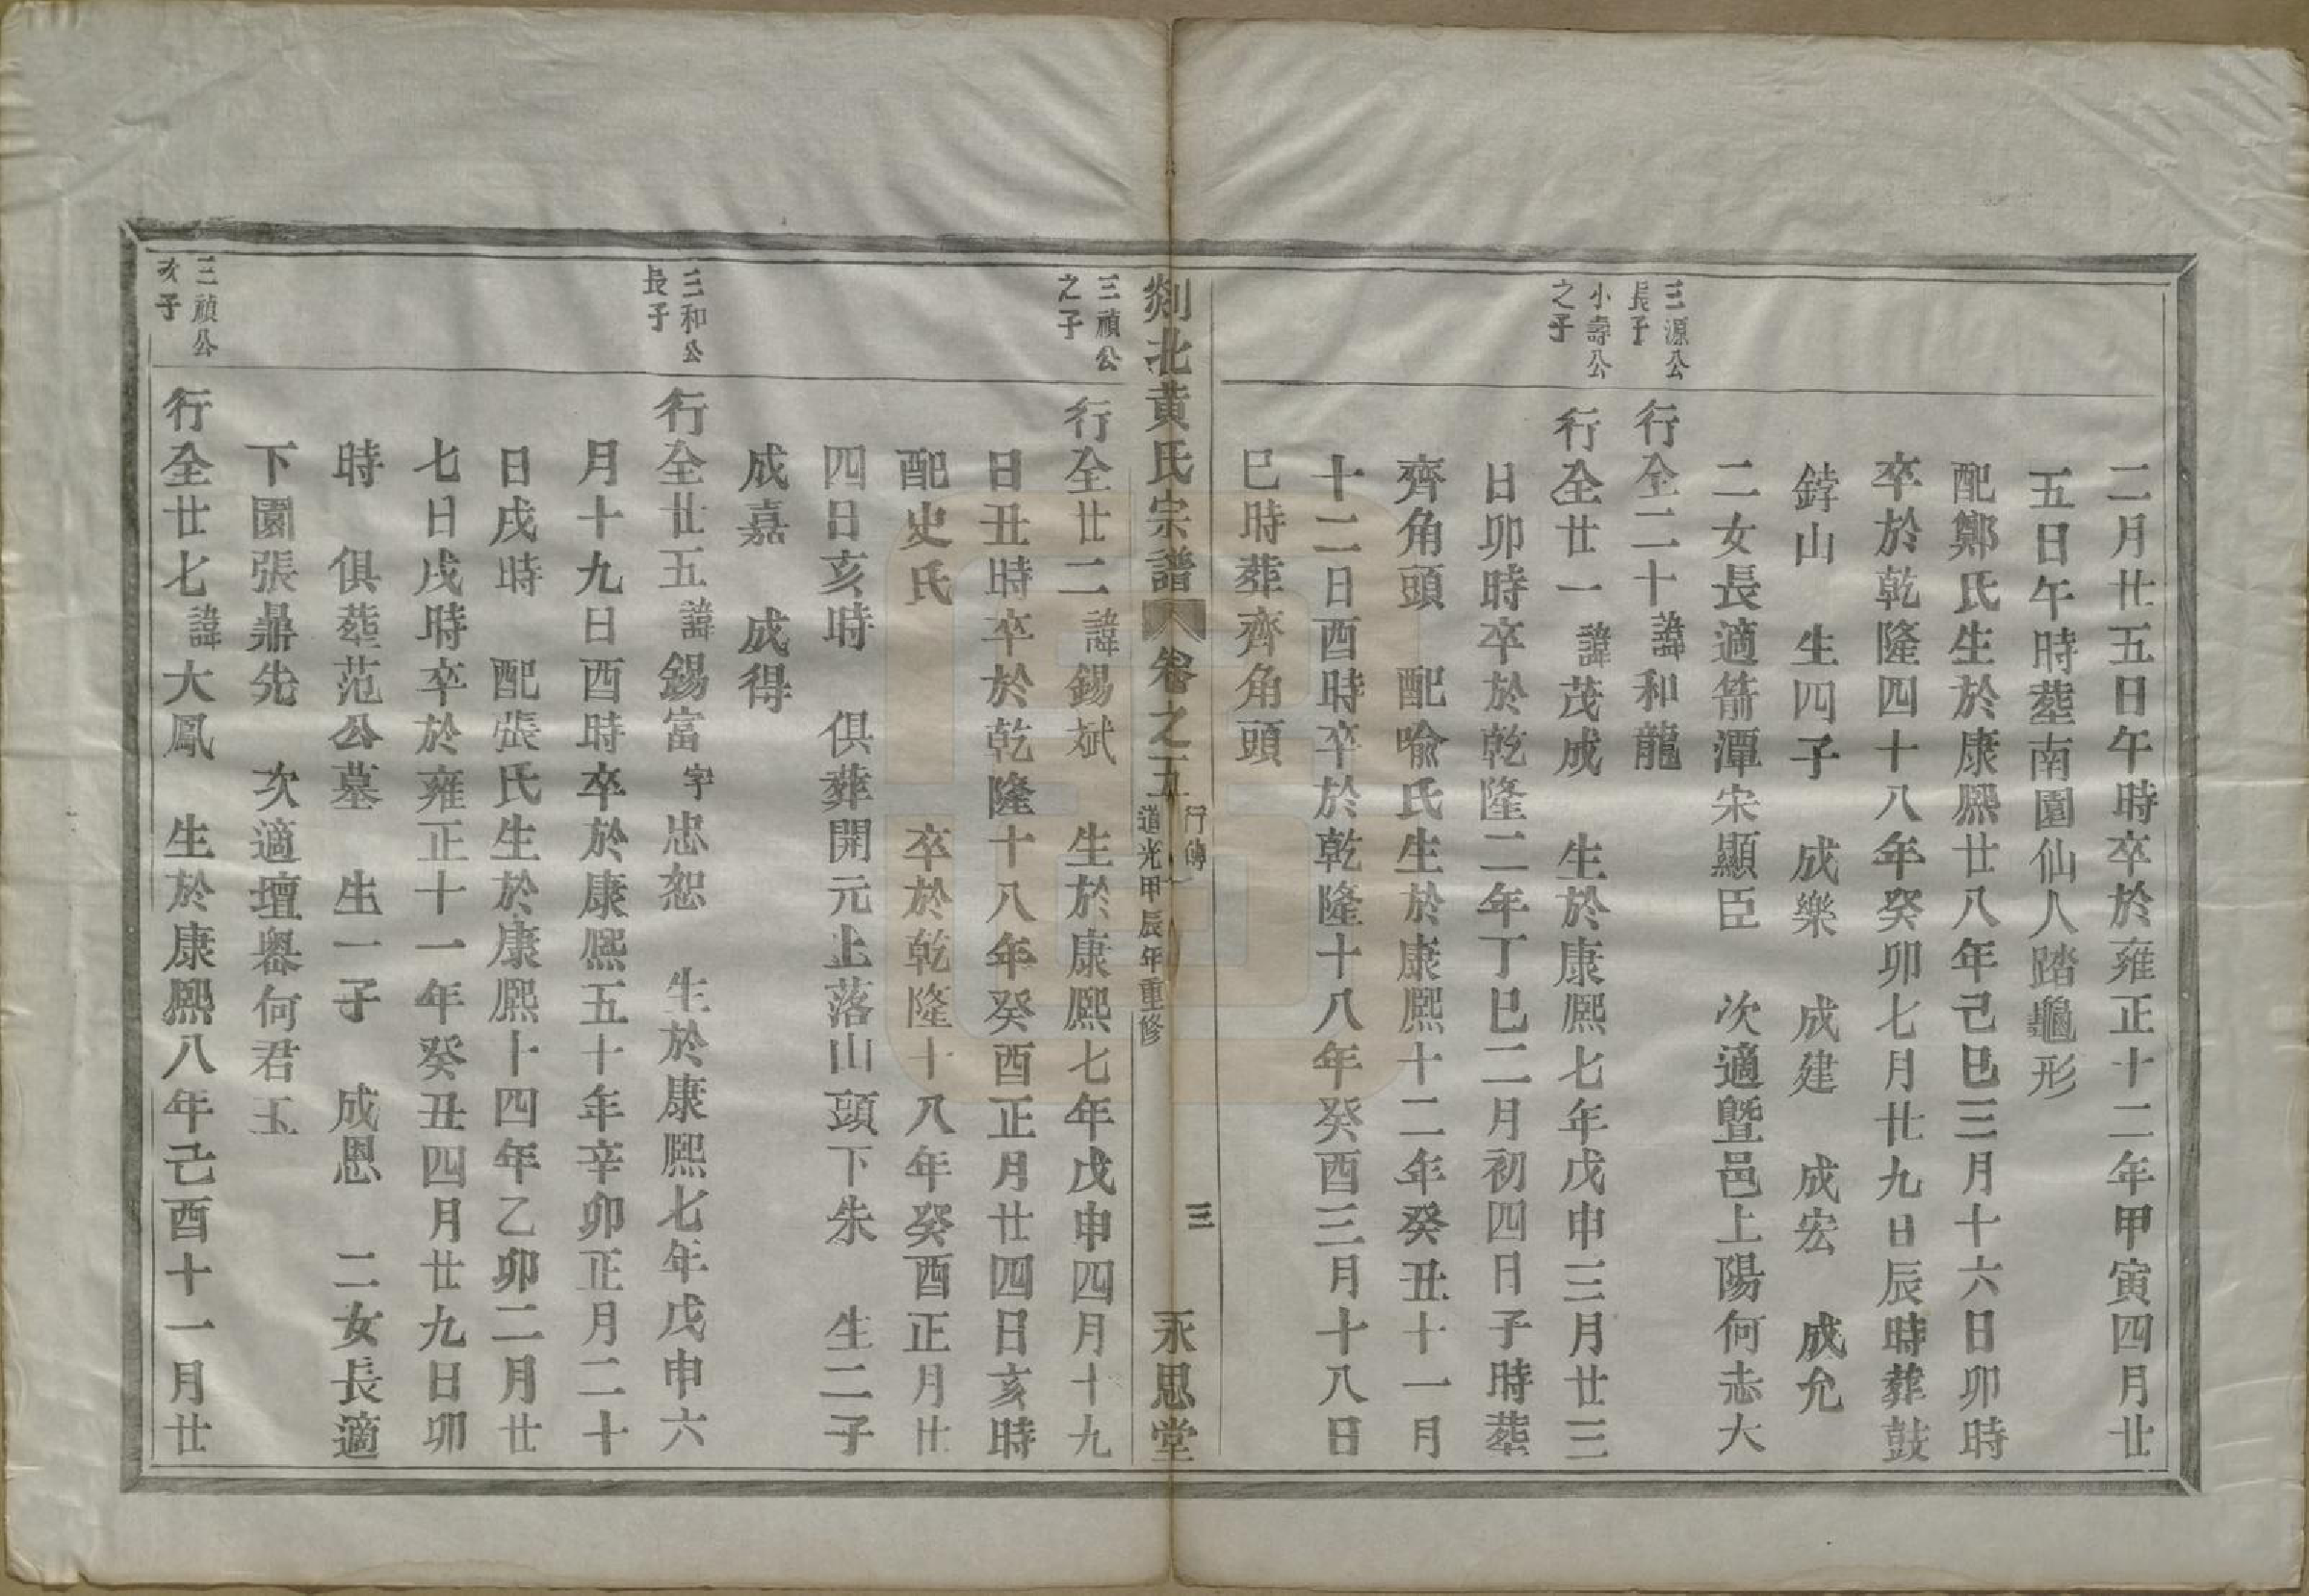 二月廿五日午時卒於雍正十二年甲寅四月廿
五日午時塟南園仙人踏龜形
配鄭氏生於康熙廿八年己巳三月十六日卯時
卒於乾隆四十八年癸卯七月廿九日辰時葬鼓
錞山 生四子 成樂 成建 成宏 成允
二女長適箭潭宋顯臣 次適暨邑上陽何志大
三源公
長子
行全二十諱和龍
小壽公
之子
行全廿一諱茂成 生於康熙七年戊申三月廿三
日卯時卒於乾隆二年丁巳二月初四日子時塟
齊角頭 配喻氏生於康熙十二年癸丑十一月
十二日酉時卒於乾隆十八年癸酉三月十八日
巳時葬齊角頭
剡北黄氏宗譜 卷之五 行傳 道光甲辰年重修 三 永思堂
三禎公
之子
行全廿二諱錫斌 生於康熙七年戊申四月十九
日丑時卒於乾隆十八年癸酉正月廿四日亥時
配史氏 卒於乾隆十八年癸酉正月廿
四日亥時 俱葬開元上落山頭下朱 生二子
成嘉 成得
三和公
長子
行全廿五諱錫富字忠恕 生於康熙七年戊申六
月十九日酉時卒於康熙五十年辛卯正月二十
日戌時 配張氏生於康熙十四年乙卯二月廿
七日戌時卒於雍正十一年癸丑四月廿九日卯
時 俱塟范公墓 生一子 成恩 二女長適
下園張鼎先 次適壇𡽪何君玉
三禎公
次子
行全廿七諱大鳳 生於康熙八年己酉十一月廿